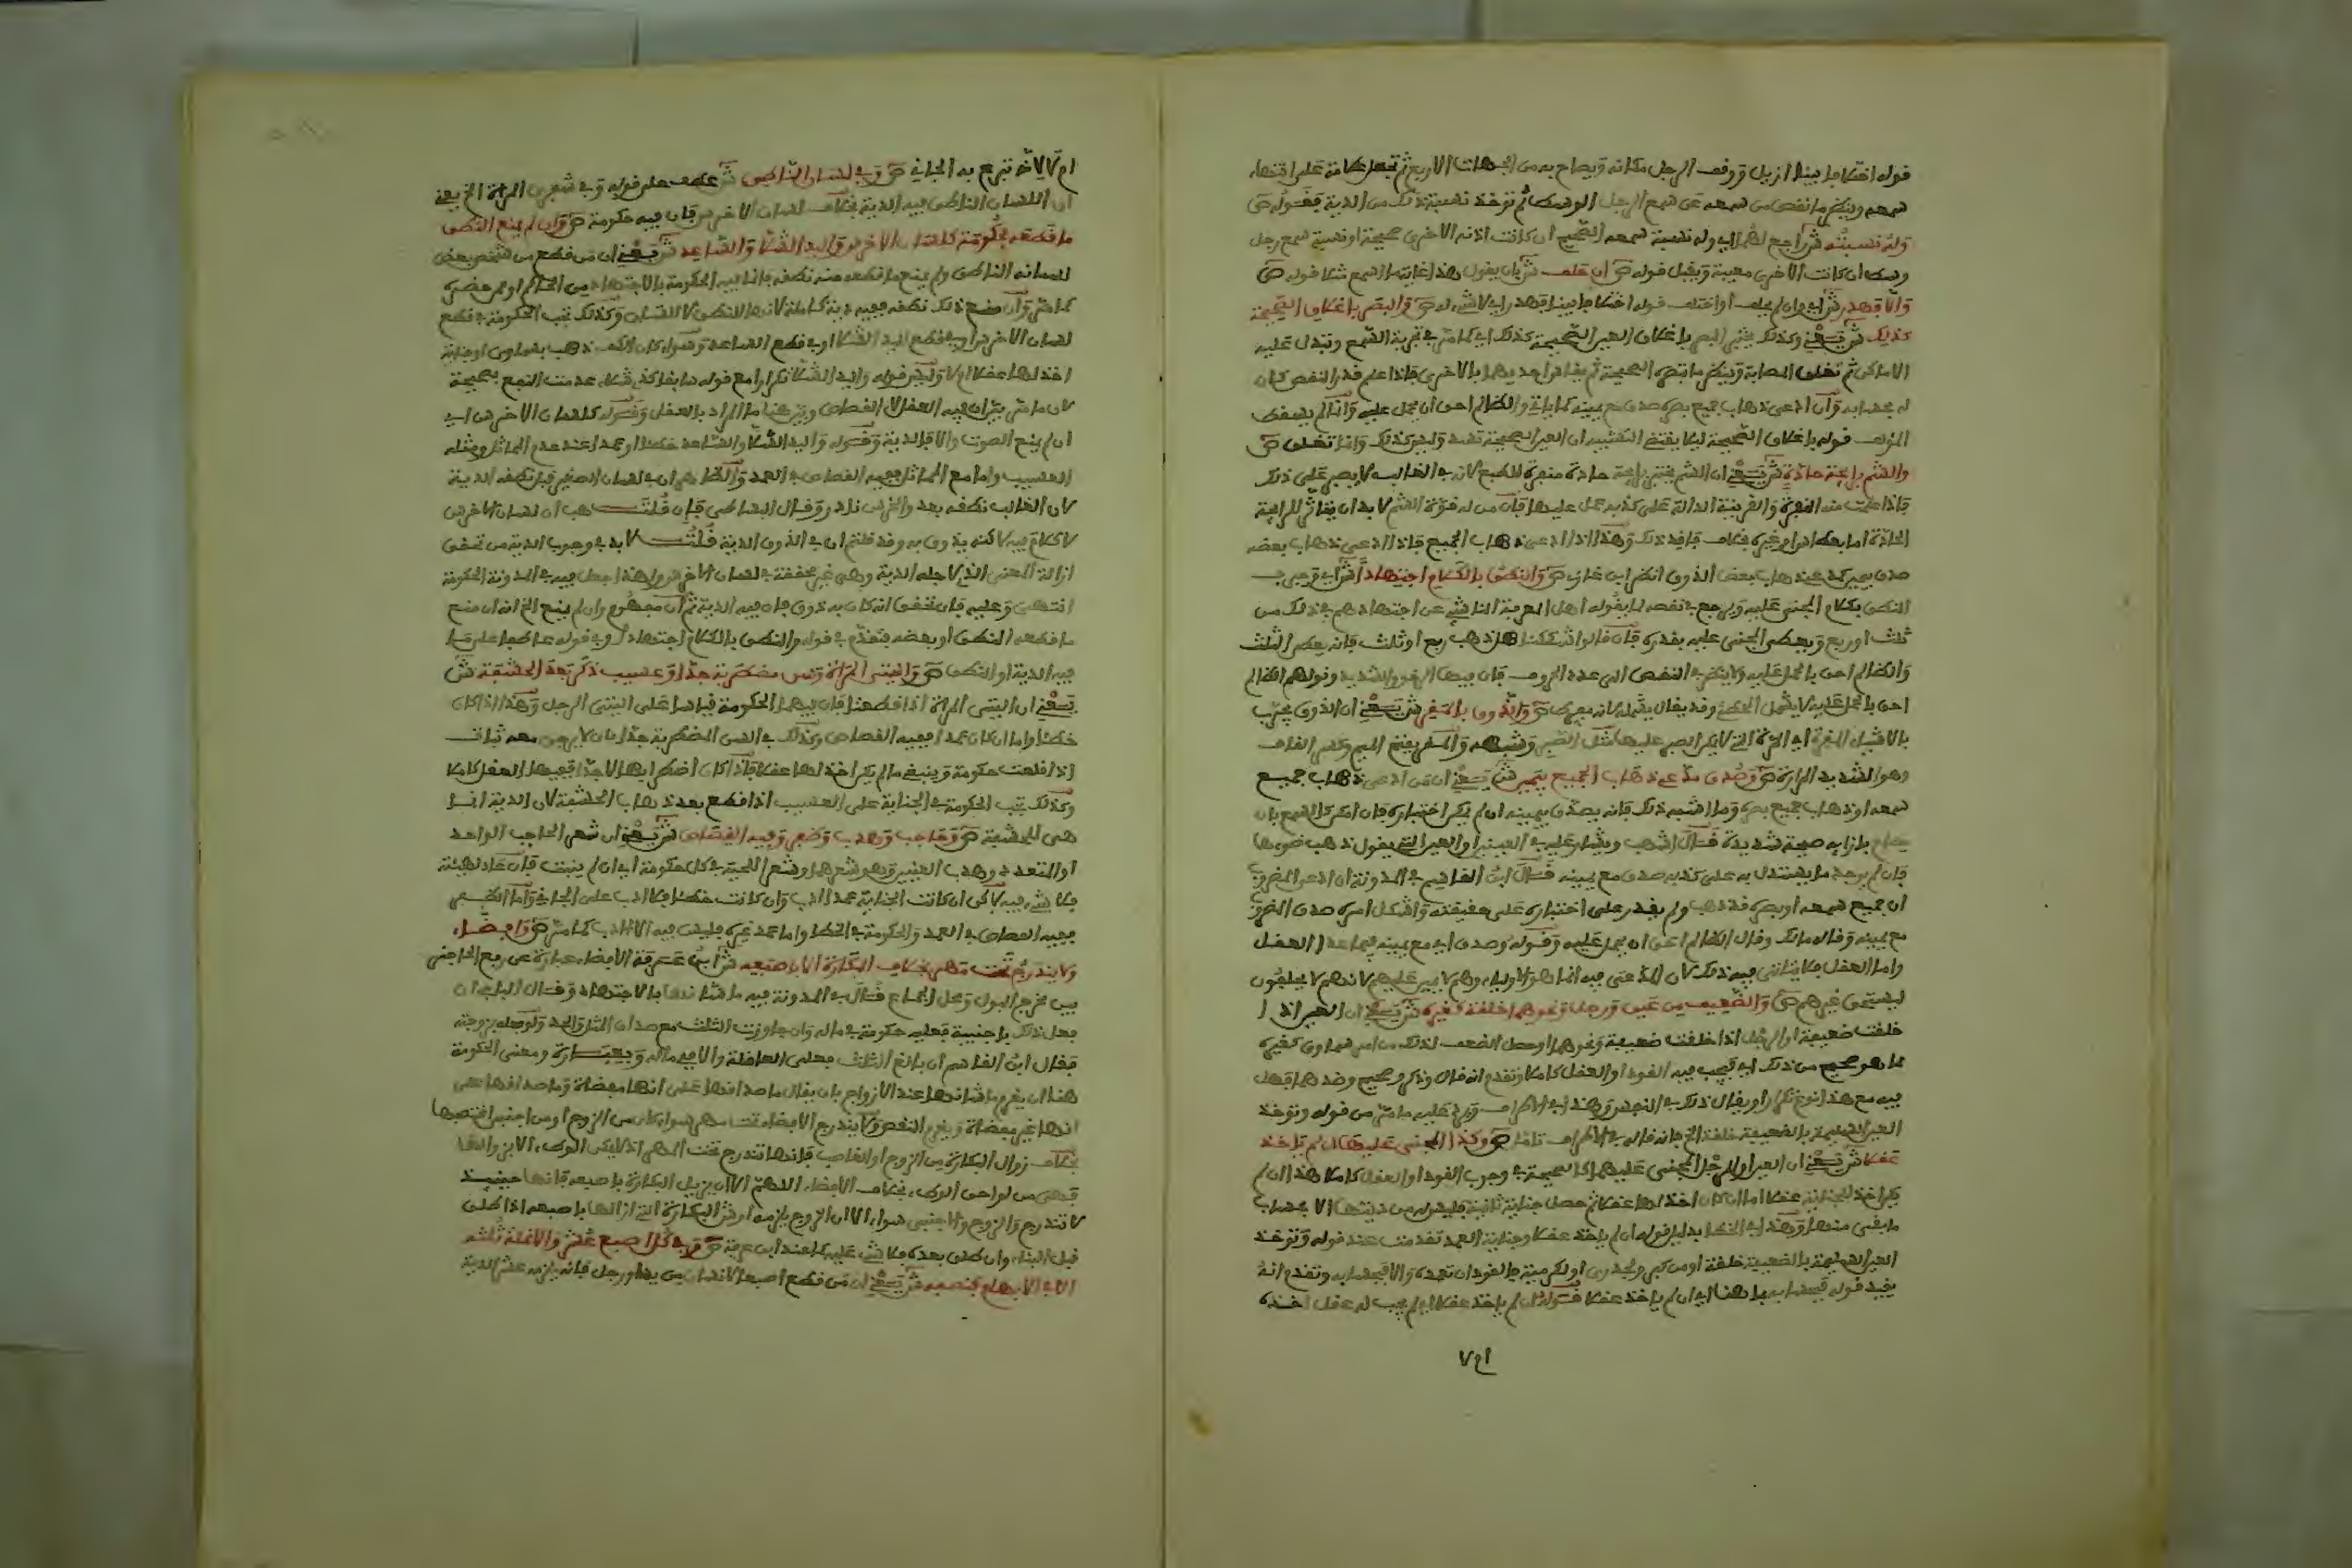 قوله اختلافا بينا ازيل ووقف الرجل مكانه ويصاح به من الجهات الاربع ثم تجعل علامة على انتهاء
سمعه وينظر ما نقص من سمعه عن سمع الرجل الوسط ثم توخذ نسبة ذلك من الدية فقوله ص
وله نسبته ش راجع لهما اي وله نسبة سمعه الصحيح ان كانت اذنه الاخرى صحيحة او نسبة سمع رجل
وسط ان كانت الاخرى معيبة وقبل قوله ص ان حلف ش بان يقول هذا غاية ما اسمع مثلا قوله ص
والا فهدر ش اي وان لم يحلف او اختلف قوله اختلافا بينا فهدر اي لا شيء له ص والبصر باغلاق الصحيحة
كذلك ش يعني وكذلك يختبر البصر باغلاق العين الصحيحة كذلك اي كما مر في تجربة السمع وتبدل عليه
الاماكن ثم تغلق المصابة وينظر ما تبصر الصحيحة ثم يقاس احديهما بالاخرى فاذا علم قدر النقص كان
له بحسابه وان ادعى ذهاب جميع بصره صدق مع يمينه كما ياتي والظالم احق ان يحمل عليه وانما لم يسقط
المؤلف قوله باغلاق الصحيحة ليلا يقتضي التشبيه ان العين الصحيحة تسد وليس كذلك وانما تغلق ص
والشم برائحة حادة ش يعني ان الشم يختبر برائحة حادة منفرة للطبع لانه في الغالب لا يصبر على ذلك
فاذا علمت منه النفرة والقرينة الدالة على كذبه عمل عليها فان من له قوة الشم لا بد ان يتاثر للرائحة
الحادة اما بعطاس او غيره بخلاف فاقد ذلك وهذا اذا ادعى ذهاب الجميع فاذا ادعى ذهاب بعضه
صدق بيمين كمدعي ذهاب بعض الذوق انظر ابن غازي ص والنطق بالكلام اجتهادا ش اي وجرب
النطق بكلام المجني عليه ويرجع في نقصه لما يقوله اهل المعرفة الناشئ عن اجتهادهم في ذلك من
ثلث او ربع ويعطى المجني عليه بقدره فان قالوا شككنا هل ذهب ربع او ثلث فانه يعطى الثلث
والظالم احق بالحمل عليه ولا ينظر في النقص الى عدد الحروف فان فيها الرخو والشديد وقولهم الظالم
احق بالحمل عليه لا يشمل المخطئ وقد يقال يشمله لانه مفرط ص والذوق بالمقر ش يعني ان الذوق يجرب
بالاشياء المقرة اي المرة التي لا يمكن الصبر عليها مثل الصبر وشبهه والمقر بفتح الميم وكسر القاف
وهو الشديد المرارة ص وصدق مدع ذهاب الجميع بيمين ش يعني ان من ادعى ذهاب جميع
سمعه او ذهاب جميع بصره وما اشبه ذلك فانه يصدق بيمينه ان لم يمكن اختباره فان امكن كالسمع بان
يصاح بازائه صيحة شديدة قال اشهب ويشار عليه في العينين او العين التي يقول ذهب ضوءها
فان لم يوجد ما يستدل به على كذبه صدق مع يمينه قال ابن القاسم في المدونة ان ادعى المضروب
ان جميع سمعه او بصره قد ذهب ولم يقدر على اختباره على حقيقته واشكل امره صدق المضروب
مع يمينه وقال مالك وقال الظالم احق ان يحمل عليه وقوله وصدق اي مع يمينه فيما عدا العقل
واما العقل فلا يتاتى فيه ذلك لان المدعي فيه انما هو الاولياء وهم لا يمين عليهم لانهم لا يحلفون
ليستحق غيرهم ص والضعيف من عين ورجل ونحوهما خلقة كغيره ش يعني ان العين اذا
خلقت ضعيفة او الرجل اذا خلقت ضعيفة ونحوهما او حصل الضعف لذلك من امر سماوي كغيره
مما هو صحيح من ذلك اي فيجب فيه القود او العقل كاملا وتقدم انه قال وذكر وصحيح وضدهما فهل
فيه مع هذا نوع تكرار او يقال ذلك في النفس وهذا في الاطراف ويرد عليه ما مر من قوله وتوخذ
العين السليمة بالضعيفة خلقة الخ فانه قاله في الاطراف تامل ص وكذا المجني عليها ان لم ياخذ
عقلا ش يعني ان العين او الرجل المجني عليهما كالصحيحة في وجوب القود او العقل كاملا هذا ان لم
يكن اخذ للجناية عقلا اما ان كان اخذ لها عقلا ثم حصل جناية ثانية فليس له من ديتها الا بحساب
ما بقي منها وهذا في الخطا بدليل قوله ان لم ياخذ عقلا وجناية العمد تقدمت عند قوله وتوخذ
العين السليمة بالضعيفة خلقة او من كبر ولجدري او لكرمية فالقود ان تعمده والا فبحسابه وتقدم انه
يقيد قوله فبحسابه بما هنا اي ان لم ياخذ عقلا قوله ان لم ياخذ عقلا اي لم يجب له عقل اخذه
ام لا
ام لا لانه تبرع به الجاني ص وفي لسان الناطق ش عطف على قوله وفي شفري المراة الخ يعني
ان اللسان الناطق فيه الدية بخلاف لسان الاخرس فان فيه حكومة ص وان لم يمنع النطق
ما قطعه فحكومة كلسان الاخرس واليد الشلا والساعد ش يعني ان من قطع من شخص بعض
لسانه الناطق ولم يمنع ما قطعه منه نطقه فانما فيه الحكومة بالاجتهاد من الحاكم او ممن حضره
كما مر وان منع ذلك نطقه ففيه دية كاملة لانها للنطق لا للسان وكذلك تجب الحكومة في قطع
لسان الاخرس او في قطع اليد الشلا او في قطع الساعد وسواء كان الكف ذهب بسماوي او جناية
اخذ لها عقلا ام لا وليس قوله واليد الشلا تكرارا مع قوله سابقا كذي شلاء عدمت النفع بصحيحة
لان ما مر بين ان فيه العقل لا القصاص وبين هنا ما المراد بالعقل وقوله كلسان الاخرس اي
ان لم يمنع الصوت والا فالدية وقوله واليد الشلا والساعد خطئا او عمدا عند عدم المماثل ومثله
العسيب واما مع المماثل ففيه القصاص في العمد والظاهر ان في لسان الصغير قبل نطقه الدية
لان الغالب نطقه بعد والخرس نادر وقال البساطي فان قلت هب ان لسان الاخرس
لا كلام فيه لاكنه يذوق به وقد قلتم ان في الذوق الدية قلت لا بد في وجوب الدية من تحقق
ازالة المعنى الذي لاجله الدية وهي غير محققة في لسان الاخرس ولهذا جعل فيه في المدونة الحكومة
انتهى وعليه فان تحقق انه كان به ذوق فان فيه الدية ثم ان مفهوم وان لم يمنع الخ انه ان منع
ما قطعه النطق او بعضه فتقدم في قوله والنطق بالكلام اجتهادا وفي قوله عاطفا على ما
فيه الدية او النطق ص واليتي المراة وسن مضطربة جدا وعسيب ذكر بعد الحشفة ش
يعني ان اليتي المراة اذا قطعتا فان فيهما الحكومة قياسا على اليتي الرجل وهذا اذا كان
خطئا واما ان كان عمدا ففيه القصاص وكذلك في السن المضطربة جدا بان لا يرجى معه ثبات
اذا قلعت حكومة وينبغي ما لم يكن اخذ لها عقلا فاذا كان اضطرابها لا جدا ففيها العقل كاملا
وكذلك تجب الحكومة في الجناية على العسيب اذا قطع بعد ذهاب الحشفة لان الدية انما
هي للحشفة ص وحاجب وهدب وظفر وفيه القصاص ش يعني ان شعر الحاجب الواحد
او المتعدد وهدب العينين وهو شعرهما وشعر اللحية في كل حكومة اي ان لم ينبت فان عاد لهيئته
فلا شيء فيه لاكن ان كانت الجناية عمدا ادب وان كانت خطئا فلا ادب على الجاني واما الظفر
ففيه القصاص في العمد والحكومة في الخطا واما عمد غيره فليس فيه الا الادب كما مر ص وافضاء
ولا يندرج تحت مهر بخلاف البكارة الا باصبعه ش ابن عرفة الافضاء عبارة عن رفع الحاجز
بين مخرج البول ومحل الجماع قال في المدونة فيه ما شانها بالاجتهاد وقال الباجي ان
فعل ذلك باجنبية فعليه حكومة في ماله وان جاوزت الثلث مع صداق المثل والحد ولو فعله بزوجته
فقال ابن القاسم ان بلغ الثلث فعلى العاقلة والا ففي ماله وبعبارة ومعنى الحكومة
هنا ان يغرم ما شانها عند الازواج بان يقال ما صداقها على انها مفضاة وما صداقها على
انها غير مفضاة ويغرم النقص ولا يندرج الافضاء تحت مهر سواء كان من الزوج او من اجنبي اغتصبها
بخلاف زوال البكارة من الزوج او الغاصب فانها تندرج تحت المهر اذ لا يمكن الوطء الا بزوالها
فهي من لواحق الوطء بخلاف الافضاء اللهم الا ان يزيل البكارة باصبعه فانها حينئذ
لا تندرج والزوج والاجنبي سواء الا ان الزوج يلزمه ارش البكارة التي ازالها باصبعه اذا طلق
قبل البناء وان طلق بعده فلا شيء عليه كما عند ابن عرفة ص وفي كل اصبع عشر والانملة ثلثه
الا في الابهام فنصفه ش يعني ان من قطع اصبعا لانسان من يد او رجل فانه يلزمه عشر الدية